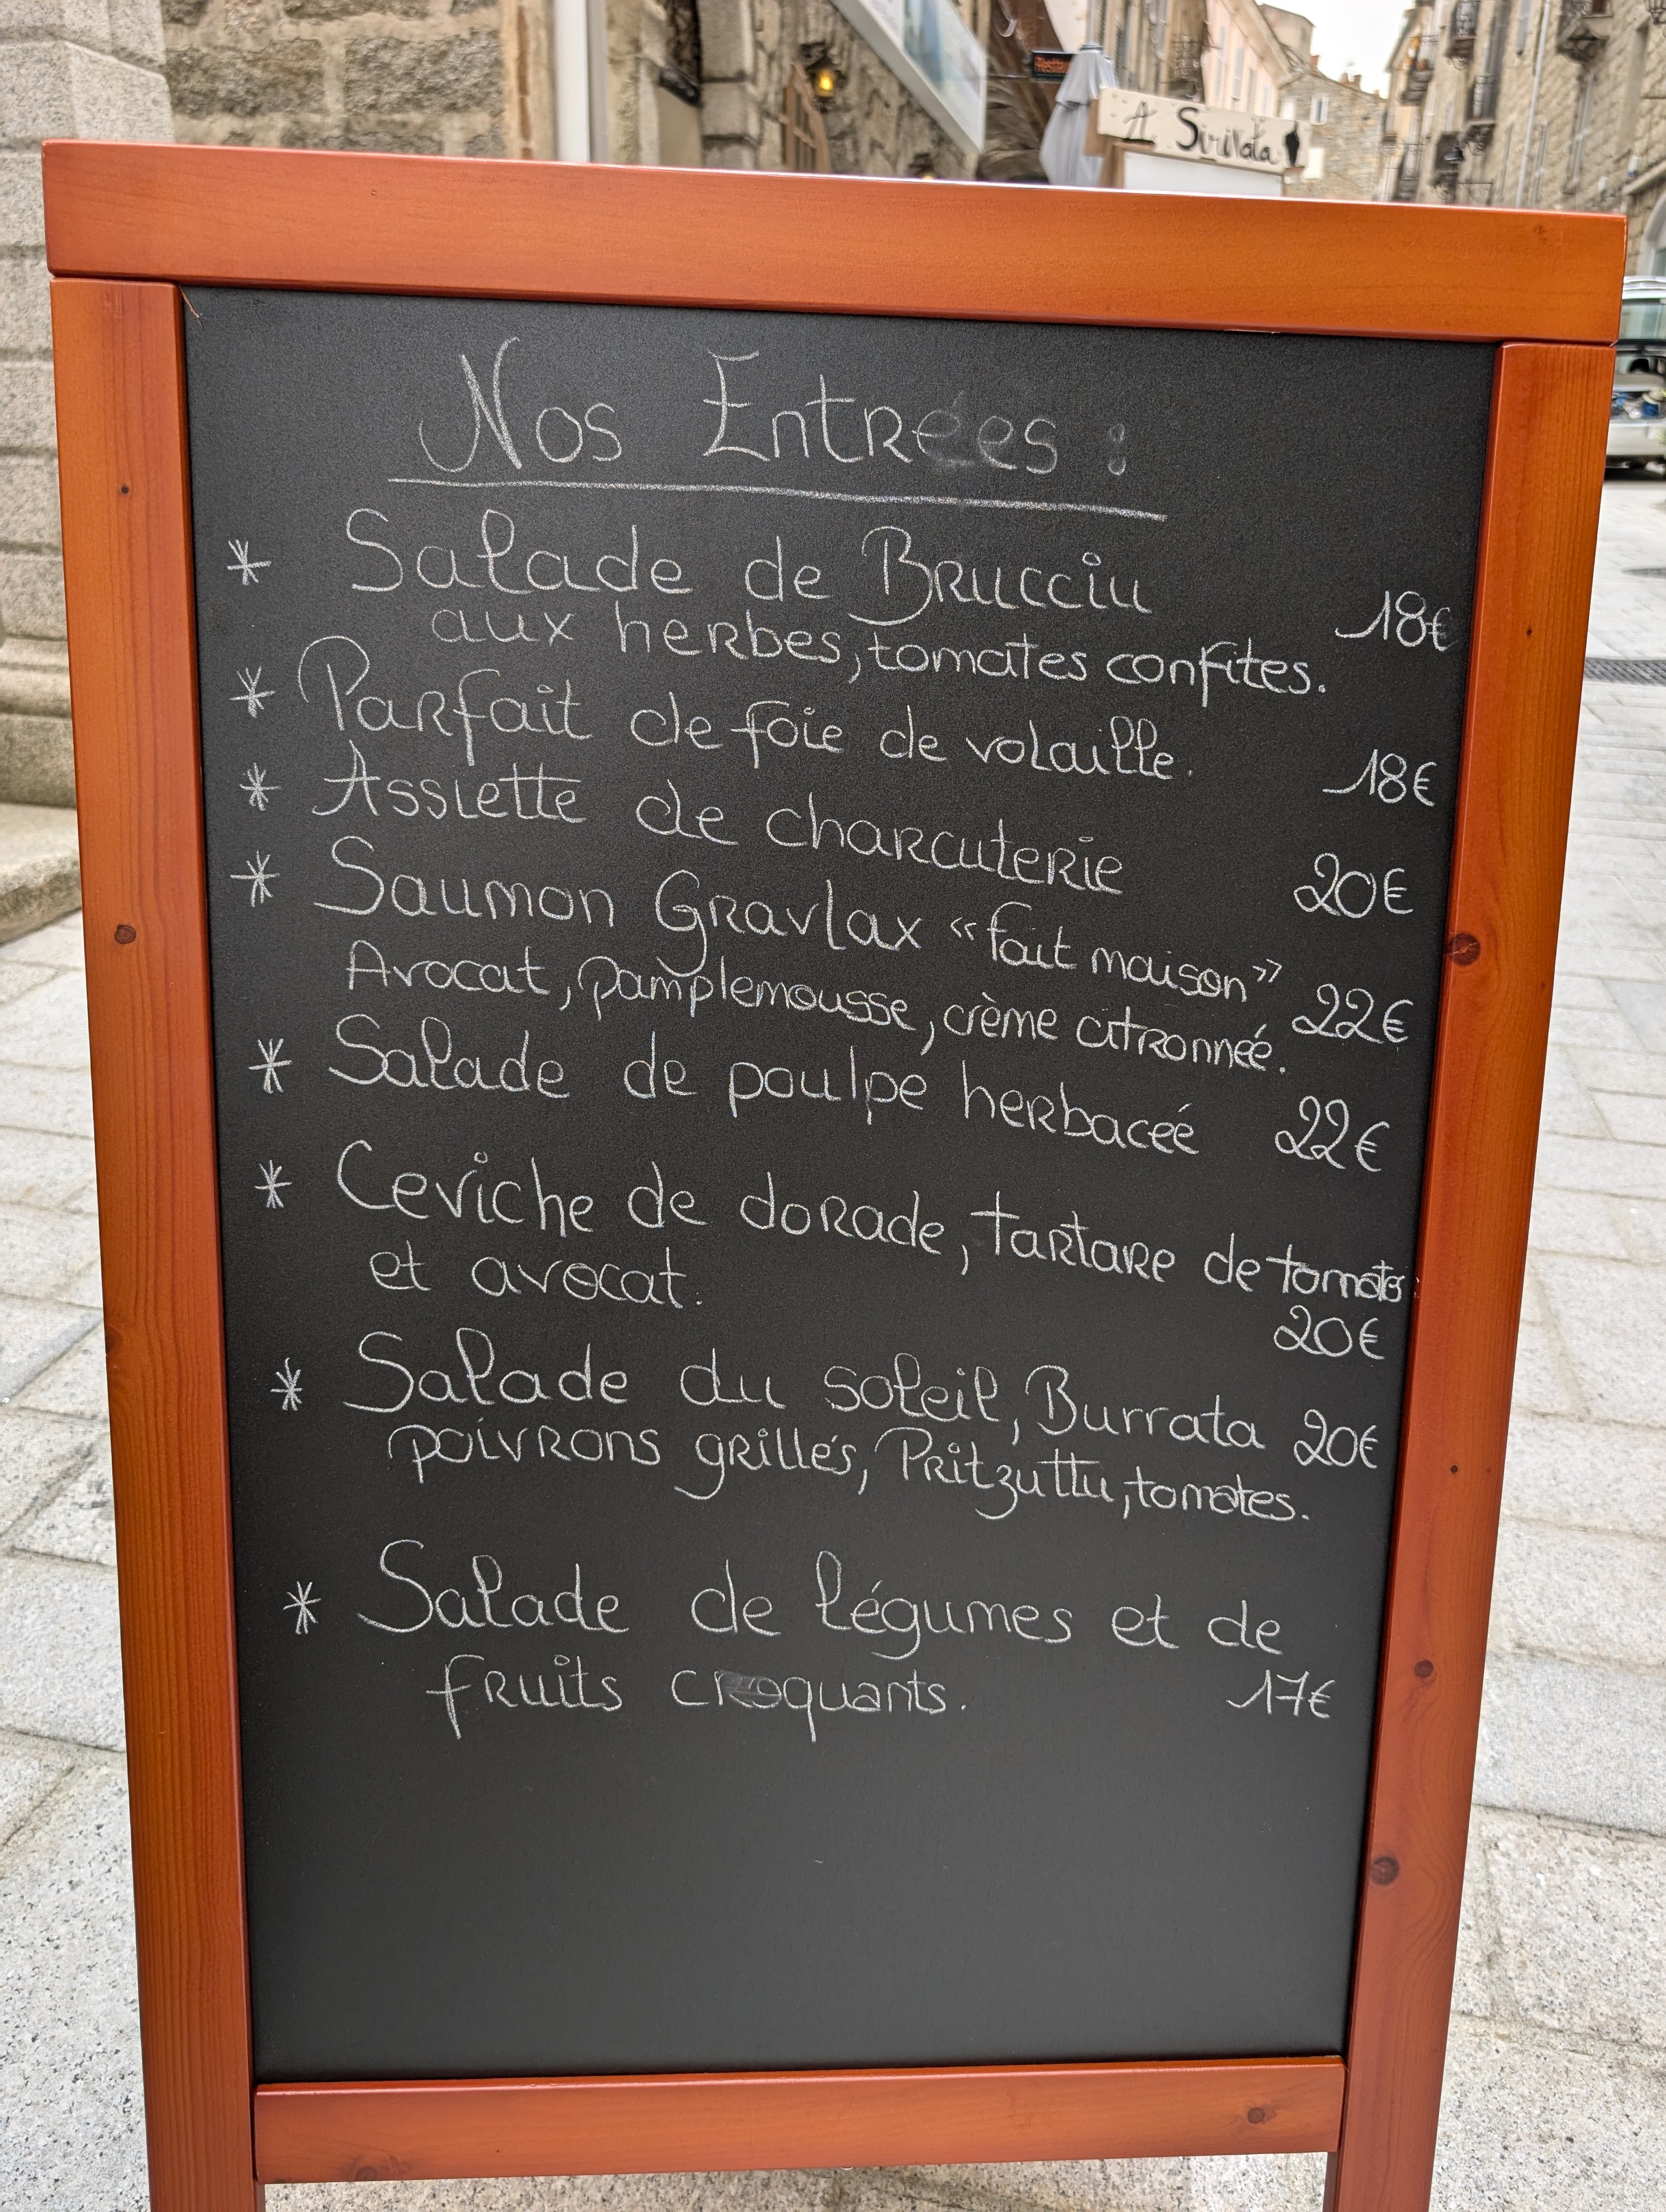 A Sirinata
Nos Entrées :
* Salade de Brucciu
aux herbes, tomates confites. 18€
* Parfait de foie de volaille. 18€
* Assiette de charcuterie 20€
* Saumon Gravlax «fait maison»
Avocat, pamplemousse, crème citronnée. 22€
* Salade de poulpe herbacée 22€
* Ceviche de dorade, tartare de tomates
et avocat.
20€
* Salade du soleil, Burrata 20€
poivrons grillés, Pritzuttu, tomates.
* Salade de légumes et de
fruits croquants. 17€